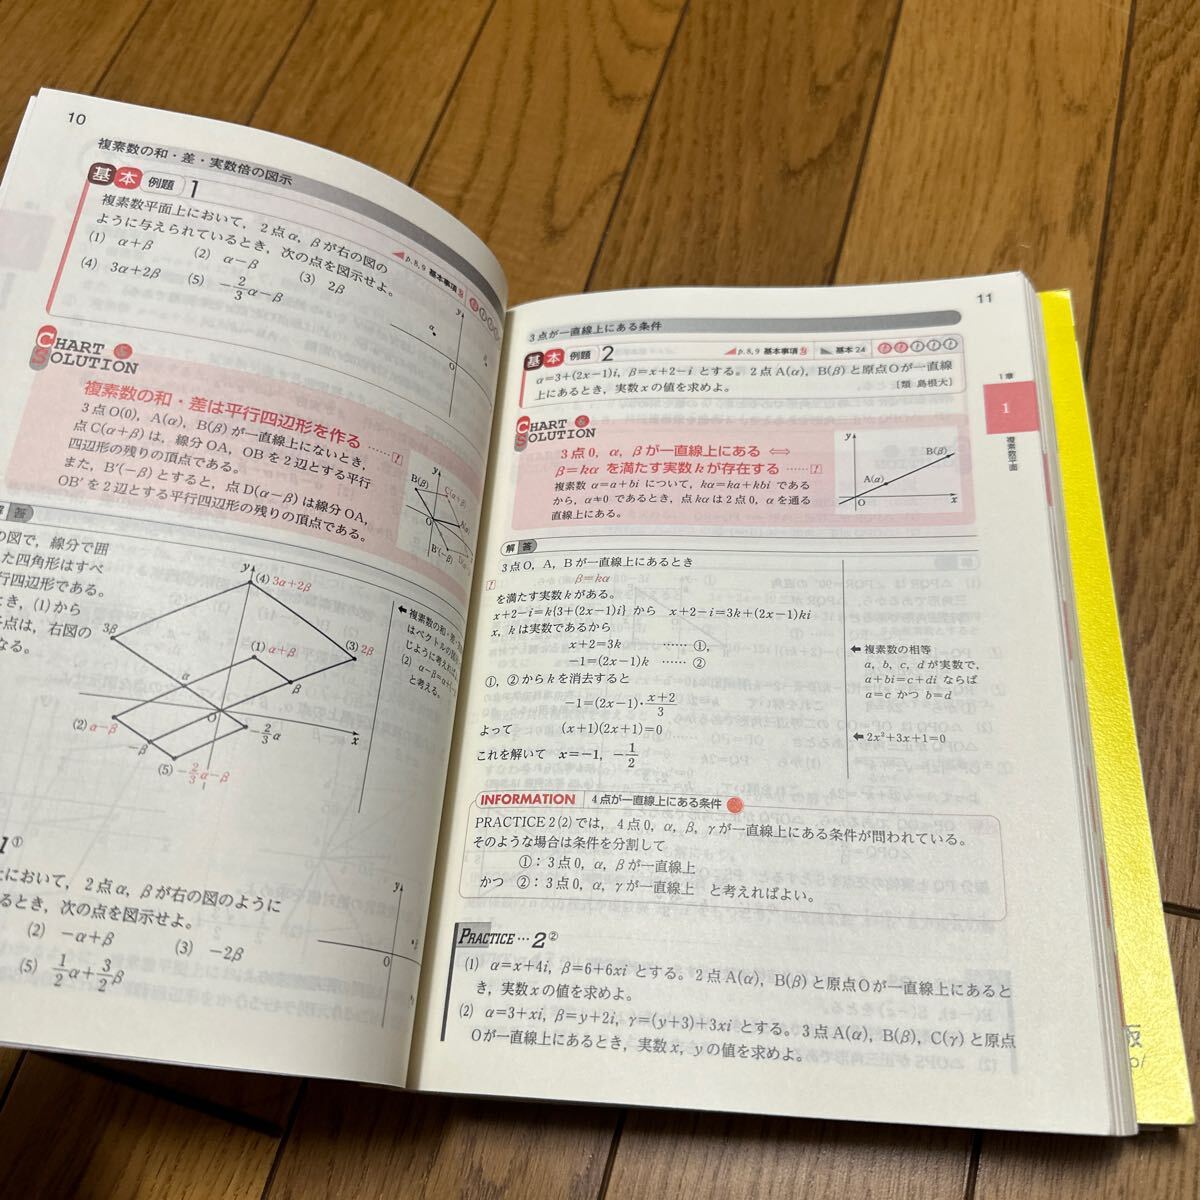 10
複素数の和・差・実数倍の図示
基 本 例題 1
複素数平面上において，2点α，βが右の図の
ように与えられているとき，次の点を図示せよ。
(1) α+β (2) α−β (3) 2β
(4) 3α+2β (5) −2/3α−β
p.8, 9 基本事項
CHART & SOLUTION
複素数の和・差は平行四辺形を作る ……!
3点O(0)，A(α)，B(β)が一直線上にないとき，
点C(α+β)は，線分OA，OBを2辺とする平行
四辺形の残りの頂点である。
また，B′(−β)とすると，点D(α−β)は線分OA，
OB′を2辺とする平行四辺形の残りの頂点である。
y
B(β)
C(α+β)
A(α)
O
B′(−β)
解 答
の図で，線分で囲
た四角形はすべ
行四辺形である。
とき，(1)から
点は，右図の
なる。
y
(4) 3α+2β
3β
(1) α+β
(3) 2β
α
β
(2) α−β
O
x
−β
−2/3α
(5) −2/3α−β
複素数の和・差
はベクトルの
じように考えれば
(2) α−β=α+(−
と考える。
1①
上において，2点α，βが右の図のように
るとき，次の点を図示せよ。
(2) −α+β (3) −2β
(5) 1/2α+3/2β
y
11
3点が一直線上にある条件
基 本 例題 2
p.8, 9 基本事項 2 基本 24
α=3+(2x−1)i，β=x+2−i とする。2点A(α)，B(β)と原点Oが一直線
上にあるとき，実数xの値を求めよ。 〔類 島根大〕
CHART & SOLUTION
3点0，α，βが一直線上にある ⟺
β=kα を満たす実数kが存在する ……!
複素数α=a+bi について，kα=ka+kbi である
から，α≠0 であるとき，点kαは2点0，αを通る
直線上にある。
y
B(β)
A(α)
O
x
1章
1
複素数平面
解 答
3点O，A，Bが一直線上にあるとき
! β=kα
を満たす実数kがある。
x+2−i=k{3+(2x−1)i} から x+2−i=3k+(2x−1)ki
x，kは実数であるから
x+2=3k …… ①，
−1=(2x−1)k …… ②
①，②からkを消去すると
−1=(2x−1)・x+2/3
よって (x+1)(2x+1)=0
これを解いて x=−1，−1/2
← 複素数の相等
a，b，c，dが実数で，
a+bi=c+di ならば
a=c かつ b=d
← 2x²+3x+1=0
INFORMATION 4点が一直線上にある条件
PRACTICE 2 (2)では，4点0，α，β，γが一直線上にある条件が問われている。
そのような場合は条件を分割して
①：3点0，α，βが一直線上
かつ ②：3点0，α，γが一直線上 と考えればよい。
PRACTICE… 2②
(1) α=x+4i，β=6+6xi とする。2点A(α)，B(β)と原点Oが一直線上にあると
き，実数xの値を求めよ。
(2) α=3+xi，β=y+2i，γ=(y+3)+3xi とする。3点A(α)，B(β)，C(γ)と原点
Oが一直線上にあるとき，実数x，yの値を求めよ。